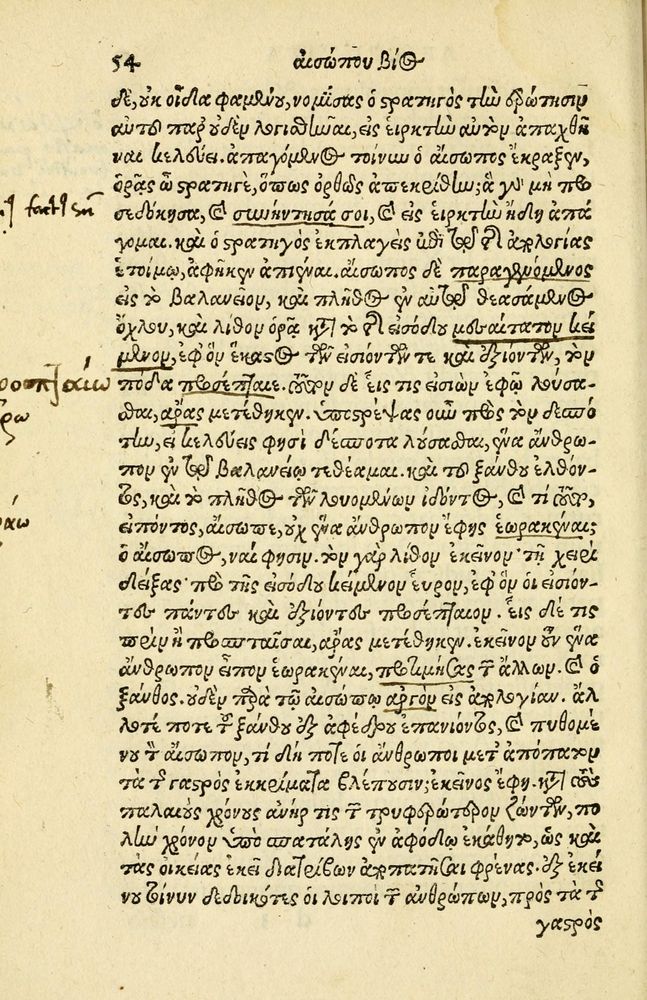 54 αἰσώπου βίος
δὲ, οὐκ οἶδα φαμένου, νομίσας ὁ στρατηγὸς τὴν ἐρώτησιν
αὐτοῦ παρ' οὐδὲν λογισθῆναι, εἰς εἱρκτὴν αὐτὸν ἀπαχθῆ
ναι κελεύει. ἀπαγόμενος τοίνυν ὁ αἴσωπος ἔκραξεν,
ὁρᾷς ὦ στρατηγὲ, ὅπως ὀρθῶς ἀπεκρίθην; ἃ γὰρ μὴ προ
σεδόκησα, καὶ συνήντησά σοι, καὶ εἰς εἱρκτὴν ἤδη ἀπά
γομαι. καὶ ὁ στρατηγὸς ἐκπλαγεὶς ἐπὶ τῷ τῆς ἀπολογίας
ἑτοίμῳ, ἀφῆκεν ἀπιέναι. αἴσωπος δὲ παραγενόμενος
εἰς τὸ βαλανεῖον, καὶ πλῆθος ἐν αὐτῷ θεασάμενος
ὄχλου, καὶ λίθον ὁρᾷ κατὰ τὸ τῆς εἰσόδου μεσαίτατον κεί
μενον, ἐφ' ὃν ἕκαστος τῶν εἰσιόντων τε καὶ ἐξιόντων, τὸν
πόδα προσέπταιε. τοῦτον δὲ εἷς τις εἰσιὼν ἐφ' ᾧ λούσα-
σθαι, ἄρας μετέθηκεν. ὑποστρέψας οὖν πρὸς τὸν δεσπό
την, εἰ κελεύεις φησὶ δέσποτα λούσασθαι, ἕνα ἄνθρω-
πον ἐν τῷ βαλανείῳ τεθέαμαι. καὶ τοῦ ξάνθου ἐλθόν-
τος, καὶ τὸ πλῆθος τῶν λουομένων ἰδόντος, καὶ τί τοῦτο,
εἰπόντος, αἴσωπε, οὐχ ἕνα ἄνθρωπον ἔφης ἑωρακέναι;
ὁ αἴσωπος, ναί φησιν. τὸν γὰρ λίθον ἐκεῖνον τῇ χειρὶ
δείξας πρὸ τῆς εἰσόδου κείμενον εὗρον, ἐφ' ὃν οἱ εἰσιόν-
τες πάντες καὶ ἐξιόντες προσέπταιον. εἷς δέ τις
πρὶν ἢ προσπταῖσαι, ἄρας μετέθηκεν. ἐκεῖνον οὖν ἕνα
ἄνθρωπον εἶπον ἑωρακέναι, προτιμήσας τῶν ἄλλων. καὶ ὁ
ξάνθος. οὐδὲν παρὰ τῷ αἰσώπῳ ἀργὸν εἰς ἀπολογίαν. ἄλ
λοτέ ποτε τοῦ ξάνθου ἐξ ἀφέδρου ἐπανιόντος, καὶ πυθομέ
νου τὸν αἴσωπον, τί δή ποτε οἱ ἄνθρωποι μετ' ἀπόπατον
τὰ τῆς γαστρὸς ἐκκρίματα βλέπουσιν; ἐκεῖνος ἔφη. κατὰ τοὺς
παλαιοὺς χρόνους ἀνήρ τις τῶν τρυφερώτερον ζώντων, πο
λὺν χρόνον ὑπὸ σπατάλης ἐν ἀφόδῳ ἐκάθητο, ὡς καὶ
τὰς οἰκείας ἐκεῖ διατρίβων ἀποπατῆσαι φρένας. ἐξ ἐκεί
νου τοίνυν δεδοικότες οἱ λοιποὶ τῶν ἀνθρώπων, πρὸς τὰ τῆς
γαστρὸς